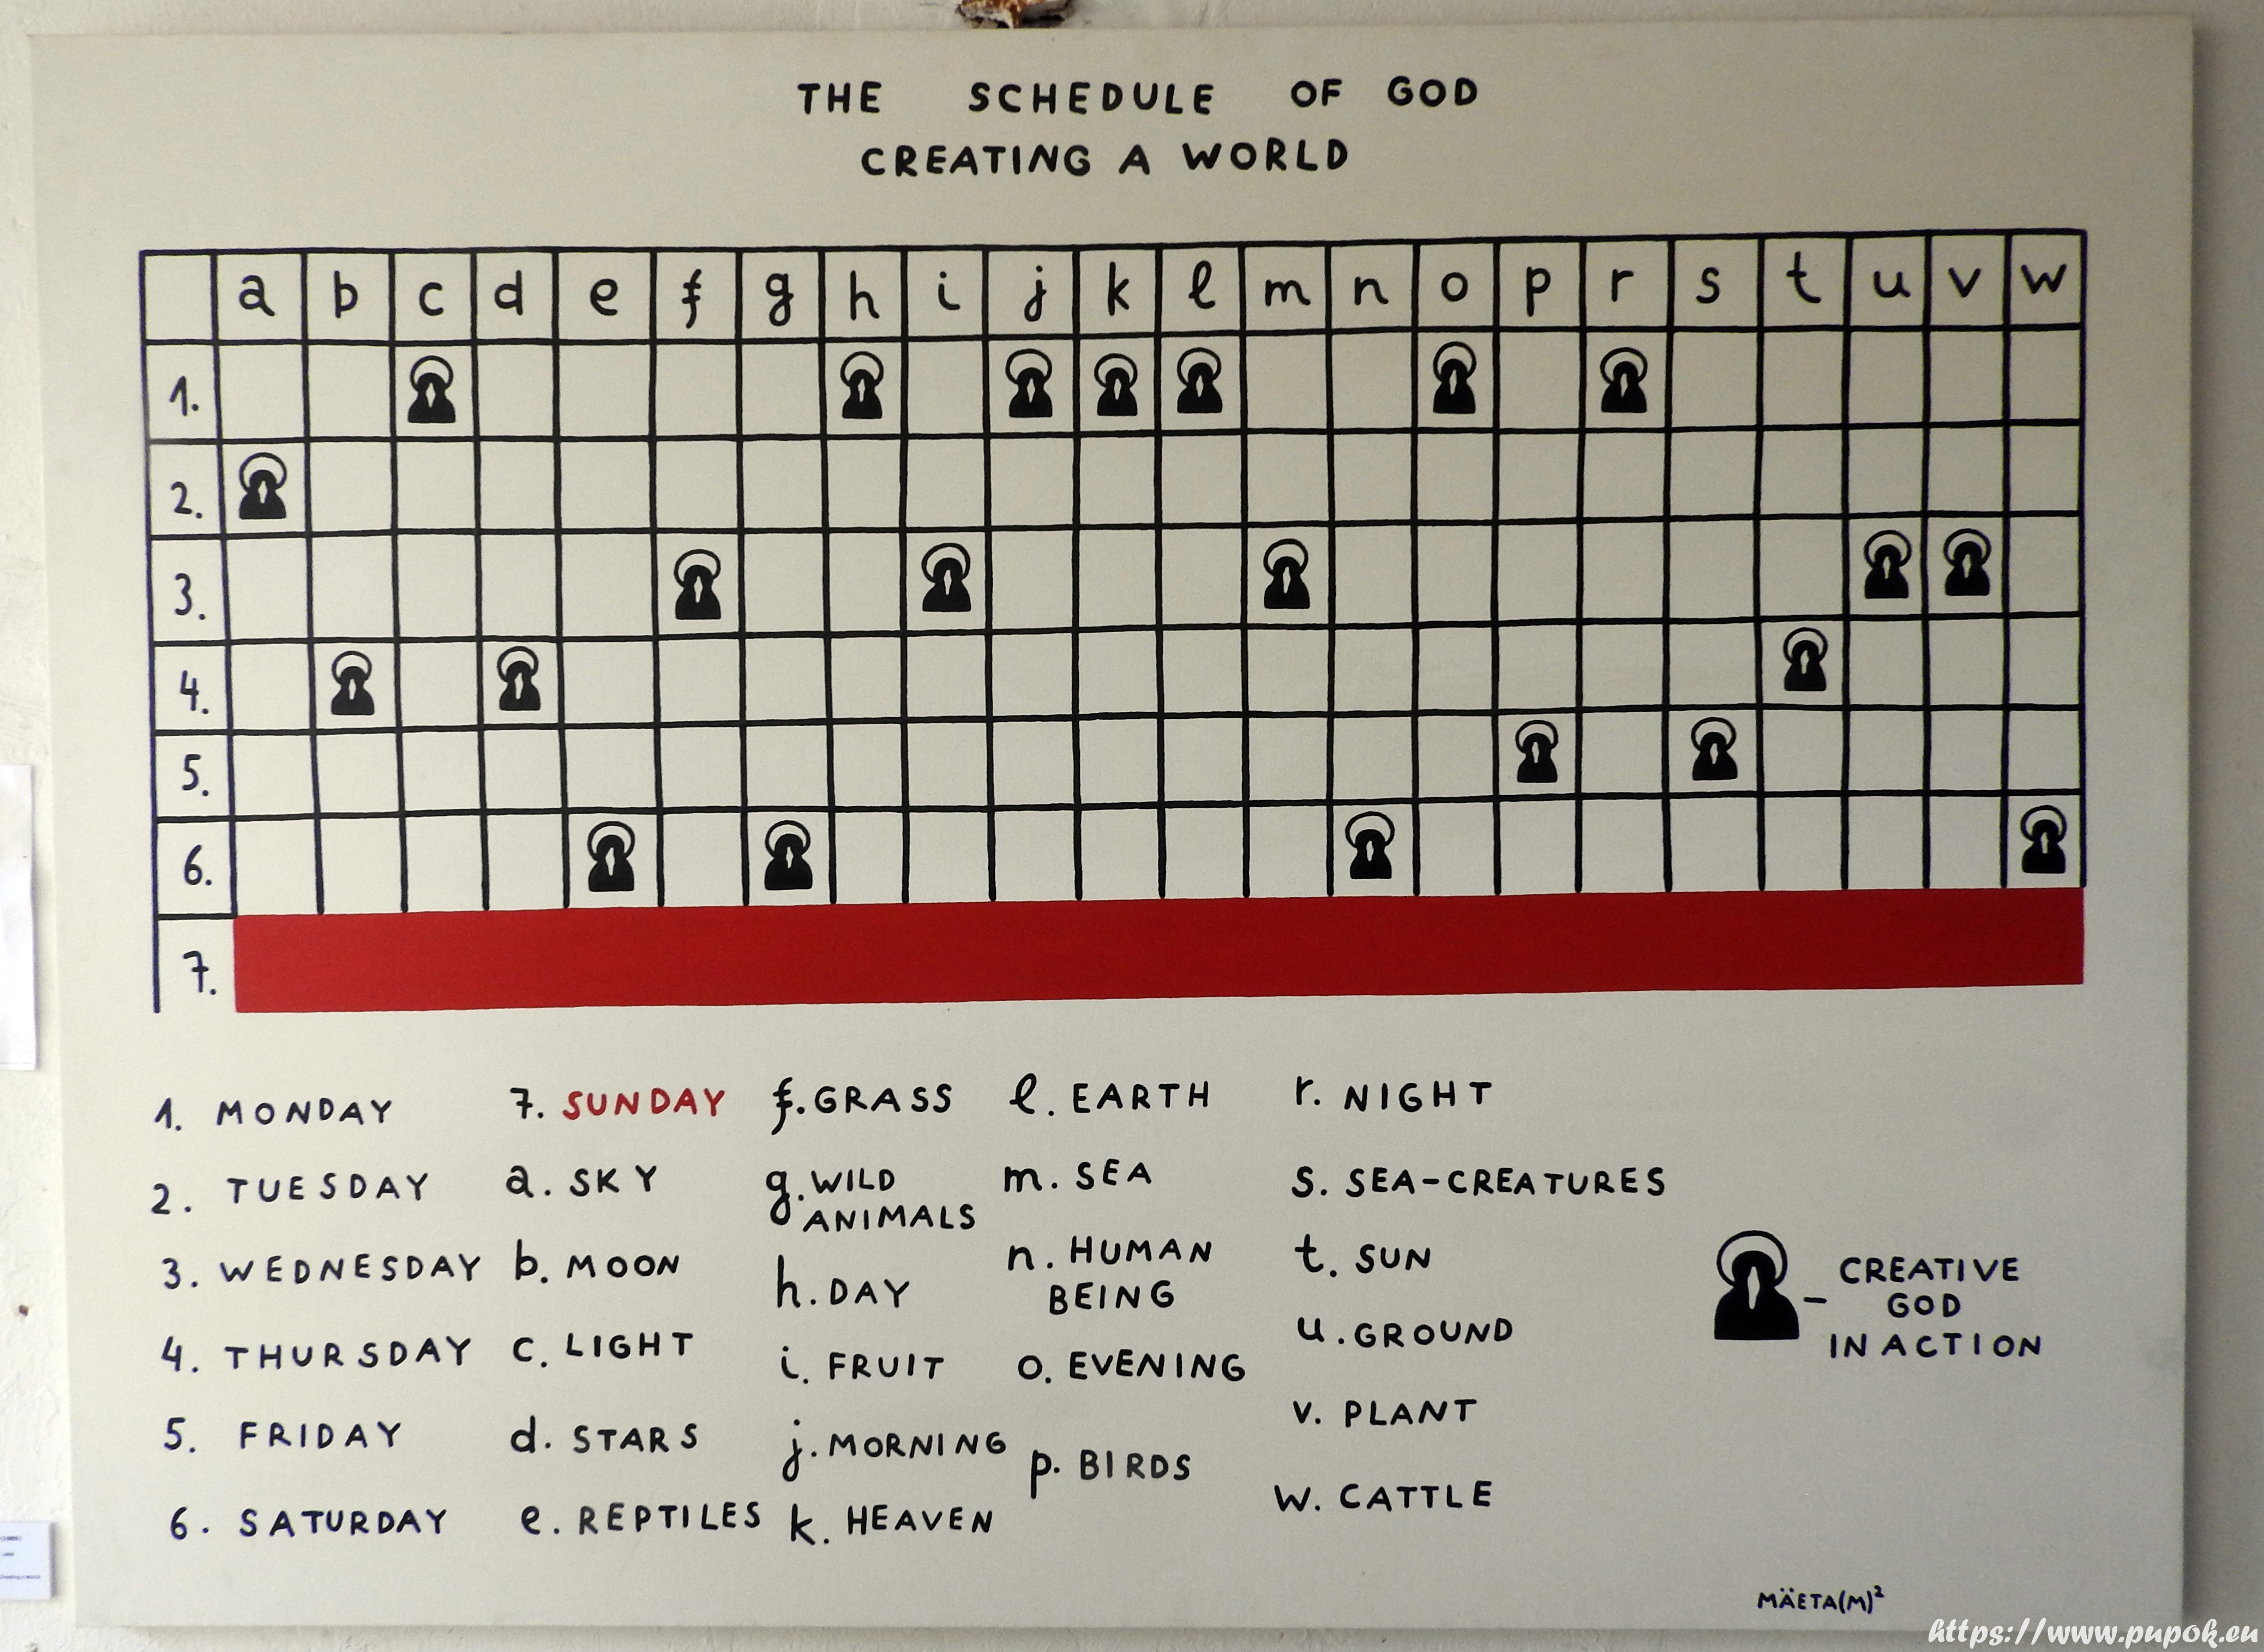 THE SCHEDULE OF GOD
CREATING A WORLD
a b c d e f g h i j k l m n o p r s t u v w
1.
2.
3.
4.
5.
6.
7.
1. MONDAY
2. TUESDAY
3. WEDNESDAY
4. THURSDAY
5. FRIDAY
6. SATURDAY
7. SUNDAY
a. SKY
b. MOON
c. LIGHT
d. STARS
e. REPTILES
f. GRASS
g. WILD
ANIMALS
h. DAY
i. FRUIT
j. MORNING
k. HEAVEN
l. EARTH
m. SEA
n. HUMAN
BEING
o. EVENING
p. BIRDS
r. NIGHT
s. SEA-CREATURES
t. SUN
u. GROUND
v. PLANT
w. CATTLE
- CREATIVE
GOD
IN ACTION
MÄETA(M)²
https://www.pupok.eu